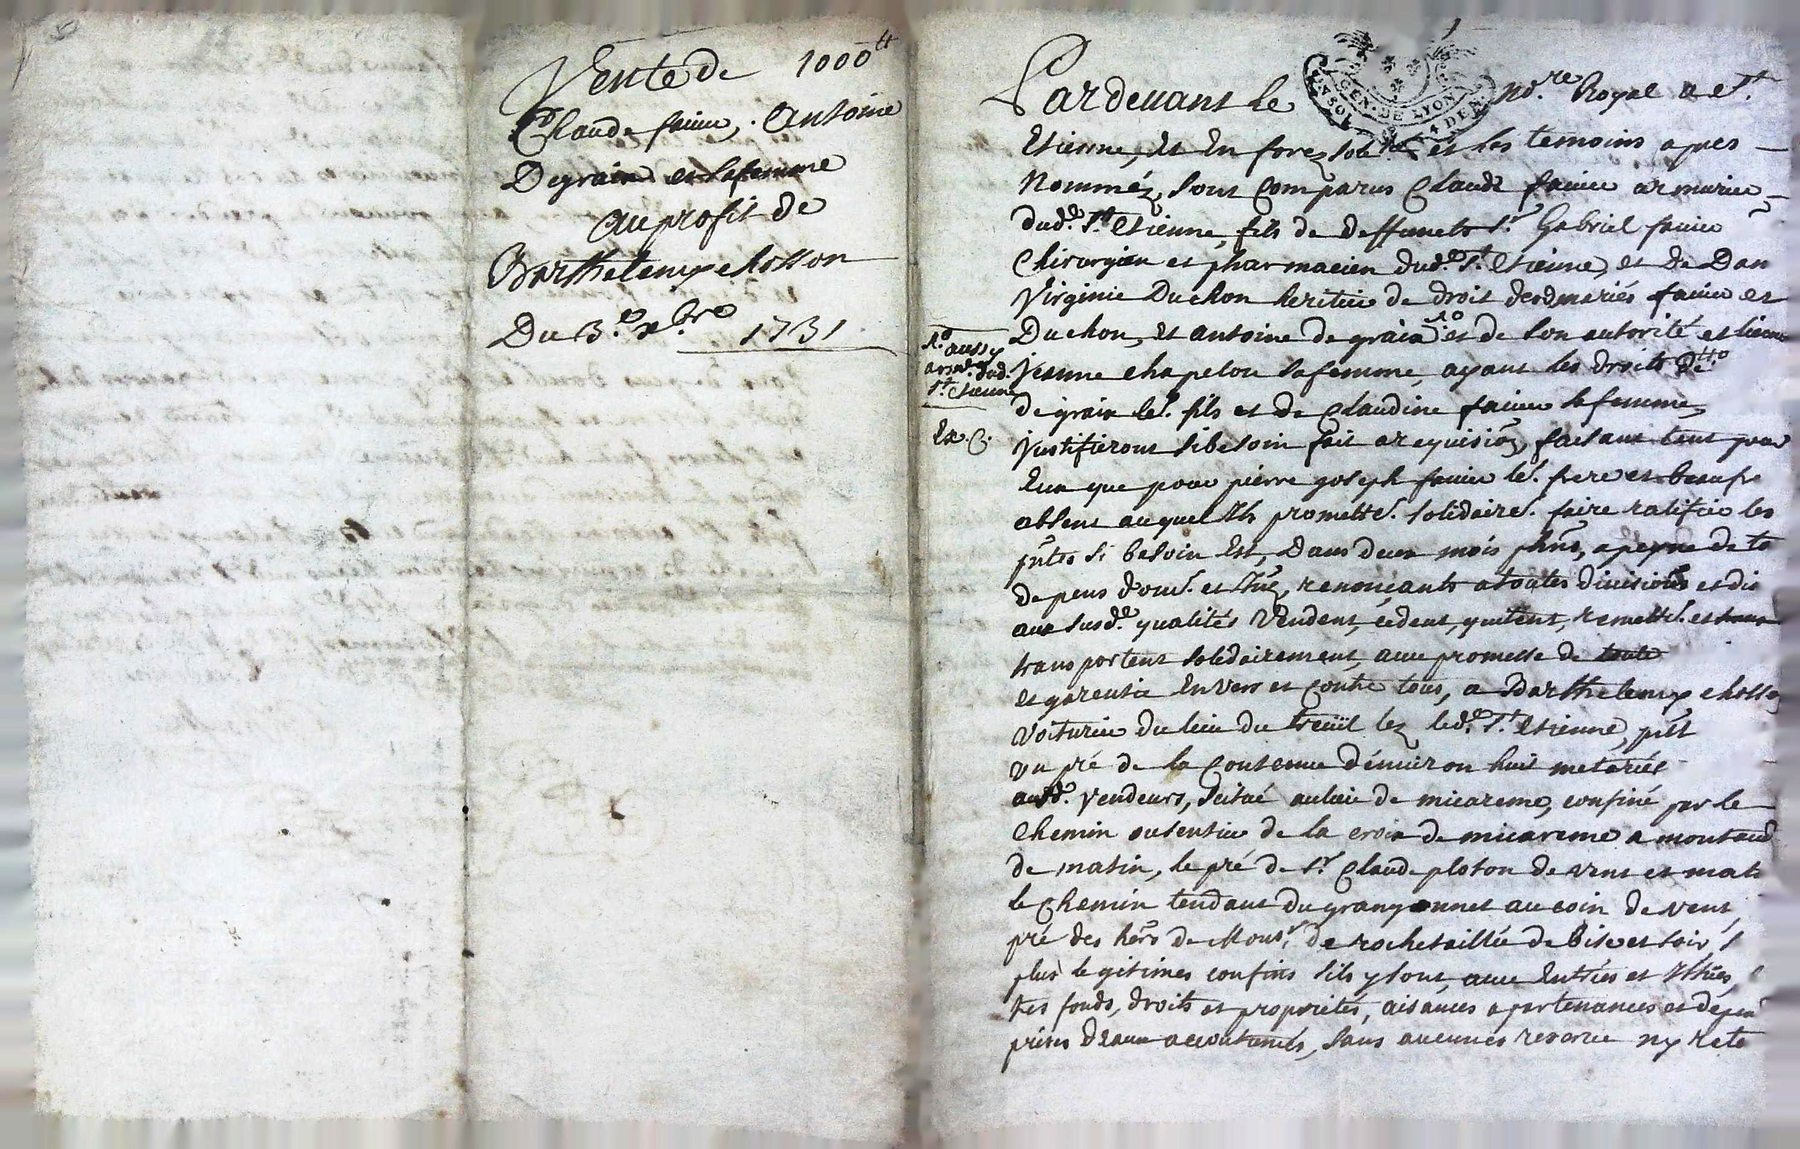 Vente de 1000ᵗᵗ
Claude fauier, Antoine
Degraix et sa femme
au profit de
Barthelemy chosson
Du 3.ᵉ xbre 1731
Pardeuant le noʳᵉ Royal a Sᵗ
GEN. DE LYON
Etienne, et En forez sousé et les temoins apres
Nommés, sont comparus Claude fauier armurier
dudᵉ Sᵗ Etienne, fils de deffunts Sʳ Gabriel fauier
Chirurgien et pharmacien dudᵉ Sᵗ Etienne, et de Dam
Virginie Duchon heritier de droit desd mariés fauier et
Duchon, et antoine de graix 1º et de son autorité et licence
1º aussy
armʳ dud.
Sᵗ Etienne
Jeanne chapelon sa femme, ayant les droits dᵗᵗᵒ
de graix leʳ fils et de Claudine fauier sa femme,
Ex. C.
justifieront si besoin fait a requision, faisant tant pour
Eux que pour pierre joseph fauier leʳ frere et beaufre
absent auquel Ils promettᵗ solidairᵗ faire ratifier les
pntes si besoin Est, Dans deux mois phns, a peyne de to
depens domˢ et Int, renonçants a toutes diuisions et dis
aux susdᵉ qualités Vendent, cedent, quitent, remettᵗ et
transportent solidairement, auec promesse de
et garentie Envers et Contre tous, a Barthelemy chosson
Voiturier du lieu du treüil lez ledᵉ Sᵗ Etienne, pnt
Vn pré de la Contenue d'enuiron huit meterées
ausdᵗ Vendeurs, scitué au lieu de micareme, confiné par le
Chemin ou sentier de la croix de micareme a montaud
de matin, le pré de Sʳ Claude ploton de vent et mat
le Chemin tendant du grangonnet au coin de vent,
pré des hers de Mousʳ de rochetaillée de bise et soir, S
plus legitimes confins s'ils y sont, auec Entrées et Issües,
ses fonds, droits et proprietés, aisances apartenances et depen
prises d'eaux accoutumés, sans aucunes reserue ny rete